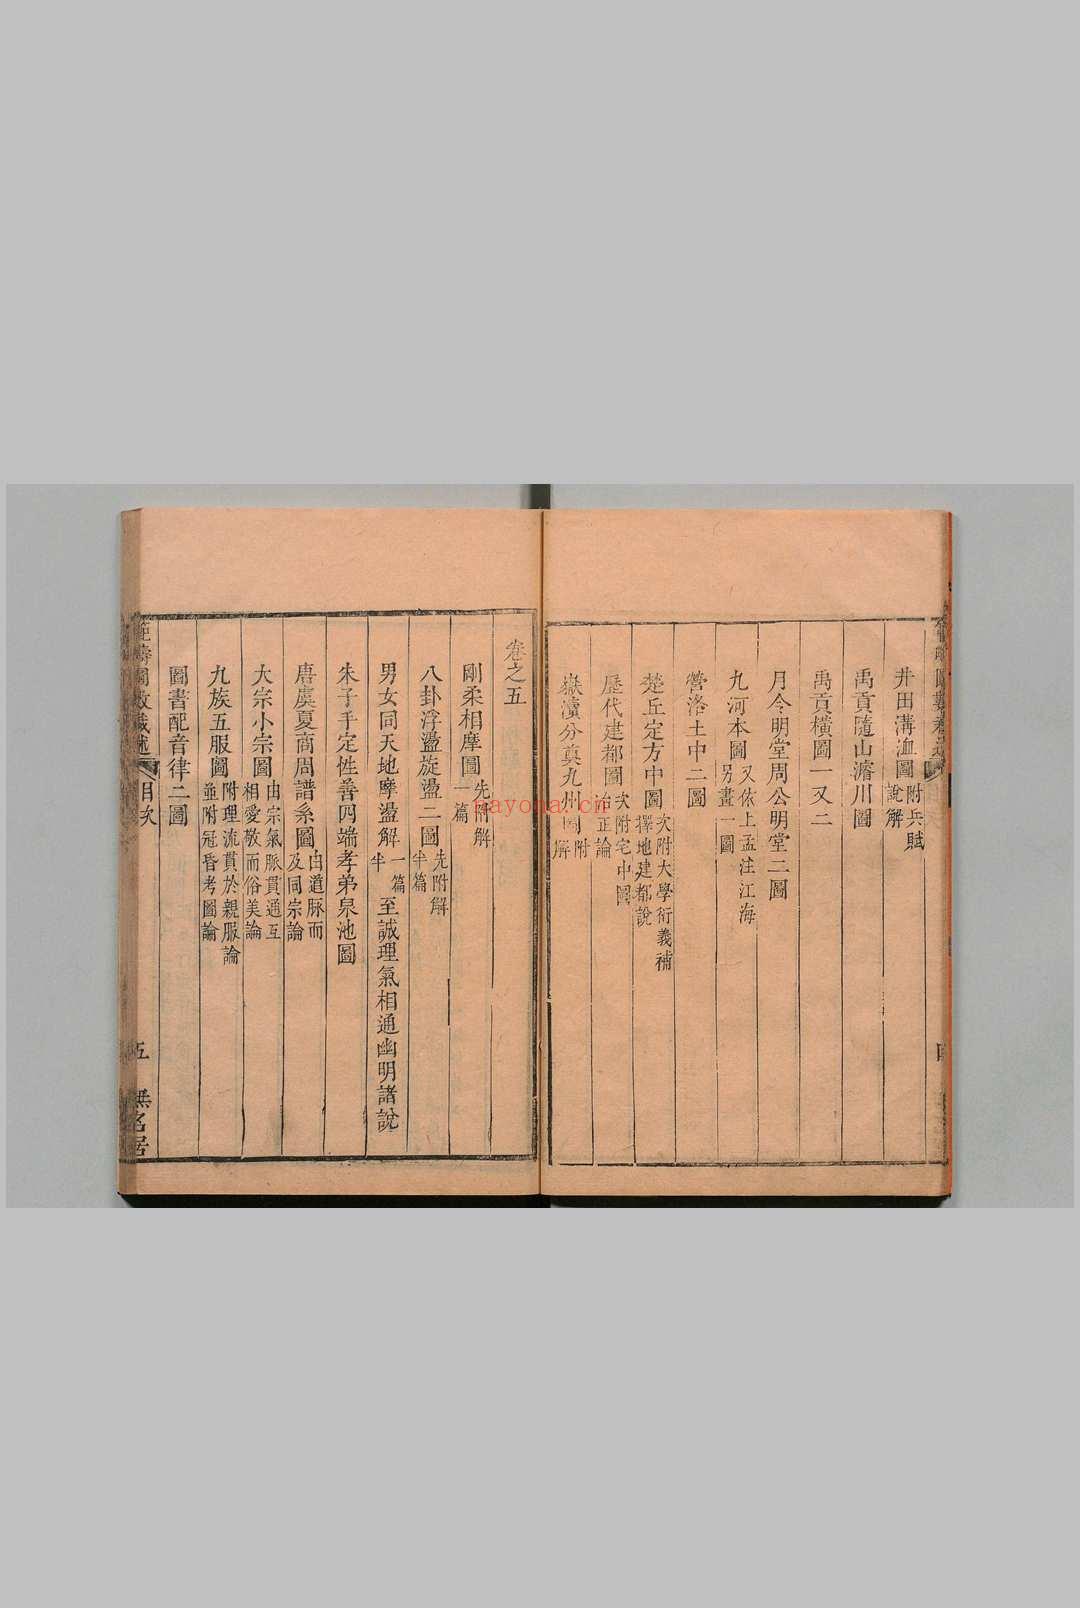 井田溝洫圖附兵賦說解
禹貢隨山濬川圖
禹貢橫圖一又二
月令明堂周公明堂二圖
九河本圖又依上孟注江海另畫一圖
營洛土中二圖
楚丘定方中圖次附大學衍義補擇地建都說
歷代建都圖次附宅中圖治正論
嶽瀆分奠九州圖附解
卷之五
剛柔相摩圖先附解一篇
八卦浮盪旋盪二圖先附解半篇
男女同天地摩盪解一篇半至誠理氣相通幽明諸說
朱子手定性善四端孝弟泉池圖
唐虞夏商周譜系圖由道脈而及同宗論
大宗小宗圖由宗氣脈貫通互相愛敬而俗美論
九族五服圖附理流貫於親服論並附冠昏考圖論
圖書配音律二圖
目次
五
無名居
nayona.cn